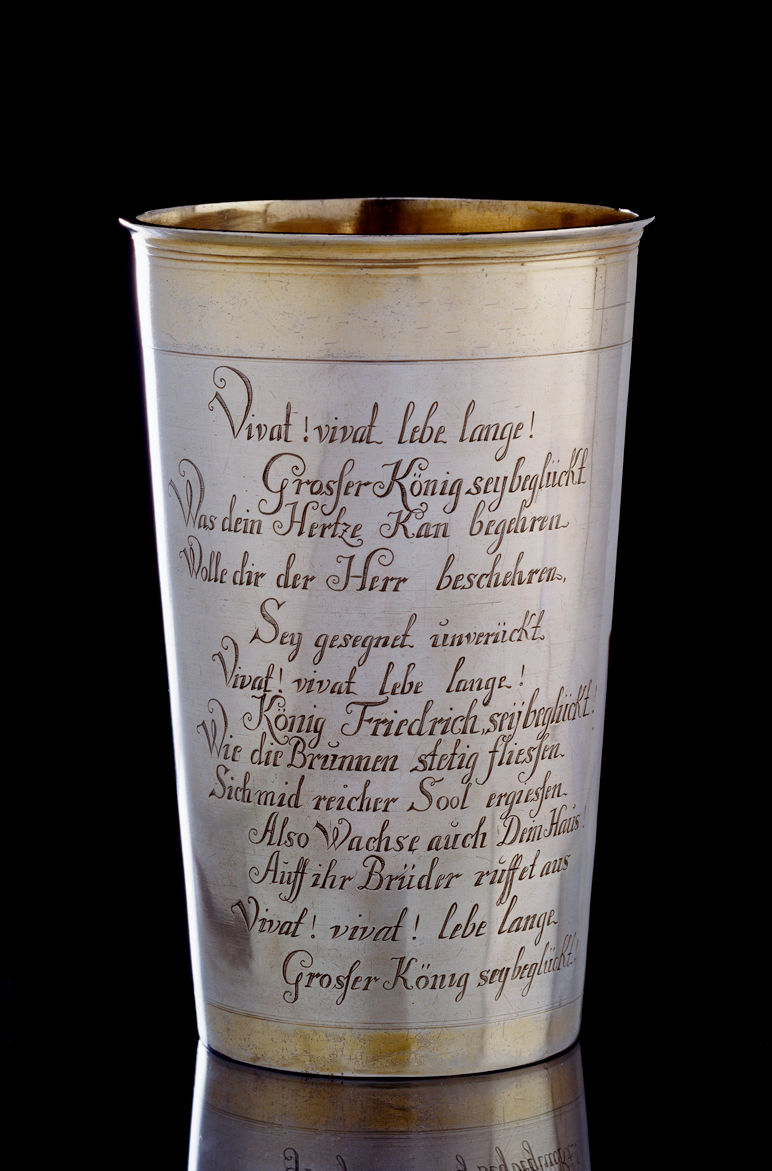 Vivat! vivat lebe lange!
Grosser König sey beglückt
Was dein Hertze Kan begehren
Wolle dir der Herr beschehren,
Sey gesegnet ŭnverückt
Vivat! vivat lebe lange!
König Friedrich, seÿ beglückt!
Wie die Brŭnnen stetig fliessen
Sich mid reicher Sool ergiessen
Also Wachse aŭch Dein Haŭs!
Aŭff ihr Brüder rŭffet aŭs
Vivat! vivat! lebe lange
Grosser König sey beglückt!